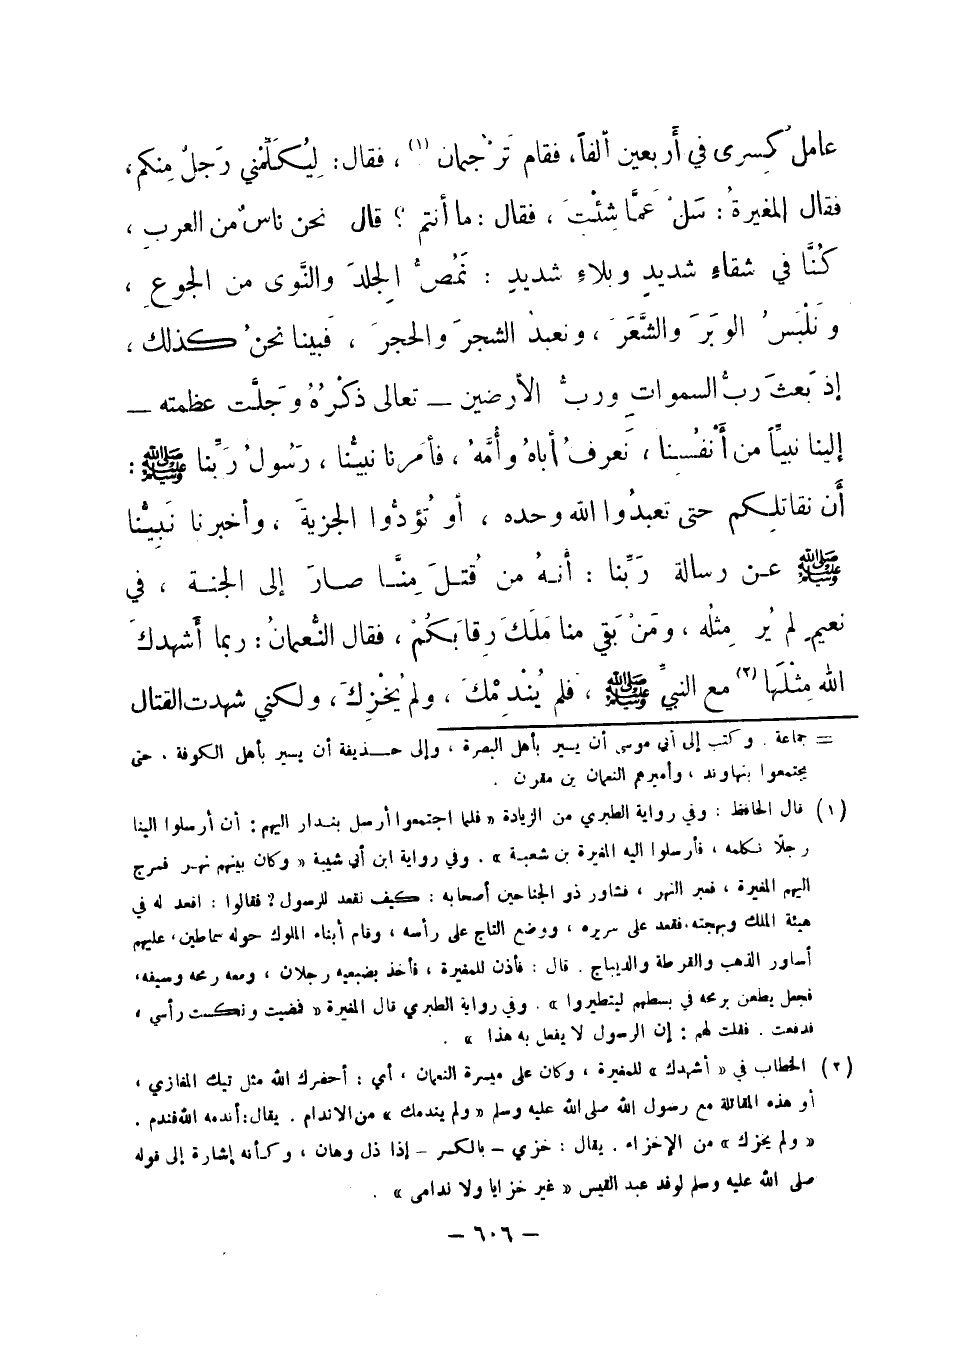 عاملُ كِسرى في أربعين ألفاً، فقام تَرْجمان (١) ، فقال: لِيُكَلِّمْني رَجلٌ مِنكم،
فقال المغيرةُ: سَلْ عَمَّا شِئْتَ ، فقال : ما أنتم ؟ قال نحن ناسٌ من العربِ ،
كُنَّا في شقاءٍ شديدٍ وبلاءٍ شديدٍ : نَمُصُّ الجِلدَ والنَّوى من الجوعِ ،
ونَلْبَسُ الوبَرَ والشَّعَرَ ، ونعبدُ الشجرَ والحجرَ ، فبينا نحنُ كذلك ،
إذ بَعثَ ربُّ السمواتِ وربُّ الأرضين – تعالى ذكْرُهُ وجَلَّت عظمته –
إلينا نبيّاً من أنْفُسِنا ، نَعرفُ أباهُ وأُمَّهُ ، فأمَرنا نبيُّنا ، رَسُولُ رَبِّنا ﷺ :
أن نقاتلكم حتى تعبدُوا الله وحده ، أو تُؤدُّوا الجزيةَ ، وأخبرنا نَبِيُّنا
ﷺ عن رسالة رَبِّنا : أنهُ من قُتلَ مِنَّا صارَ إلى الجنة ، في
نعيمٍ لم يُر مِثلُه ، ومَنْ بَقي منا مَلَكَ رِقابَكُمْ ، فقال النُّعمانُ : ربما أشهدكَ
الله مِثْلَها (٢) مع النبيِّ ﷺ ، فلم يُنْدِمْكَ ، ولم يُخْزِكَ ، ولكني شهدت القتال
= جماعة . وكتب إلى أبي موسى أن يسير بأهل البصرة ، وإلى حذيفة أن يسير بأهل الكوفة ، حتى
يجتمعوا بنهاوند ، وأميرهم النعمان بن مقرن .
(١) قال الحافظ : وفي رواية الطبري من الزيادة « فلما اجتمعوا أرسل بندار اليهم : أن أرسلوا الينا
رجلاً نكلمه ، فأرسلوا اليه المغيرة بن شعبة » . وفي رواية ابن أبي شيبة « وكان بينهم نهر فسرح
اليهم المغيرة ، فعبر النهر ، فشاور ذو الجناحين أصحابه : كيف نقعد للرسول ? فقالوا : اقعد له في
هيئة الملك وبهجته، فقعد على سريره ، ووضع التاج على رأسه ، وقام أبناء الملوك حوله سماطين، عليهم
أساور الذهب والقرطة والديباج . قال : فأذن للمغيرة ، فأخذ بضبعيه رجلان ، ومعه رمحه وسيفه،
فجعل يطعن برمحه في بسطهم ليتطيروا » . وفي رواية الطبري قال المغيرة « فمضيت ونكست رأسي ،
فدفعت . فقلت لهم : إن الرسول لا يفعل به هذا » .
(٢) الخطاب في « أشهدك » للمغيرة ، وكان على ميسرة النعمان ، أي : أحضرك الله مثل تيك المغازي ،
أو هذه المقاتلة مع رسول الله صلى الله عليه وسلم « ولم يندمك » من الاندام . يقال: أندمه الله فندم .
« ولم يخزك » من الإخزاء . يقال : خزي – بالكسر – إذا ذل وهان ، وكأنه إشارة إلى قوله
صلى الله عليه وسلم لوفد عبد القيس « غير خزايا ولا ندامى » .
– ٦٠٦ –